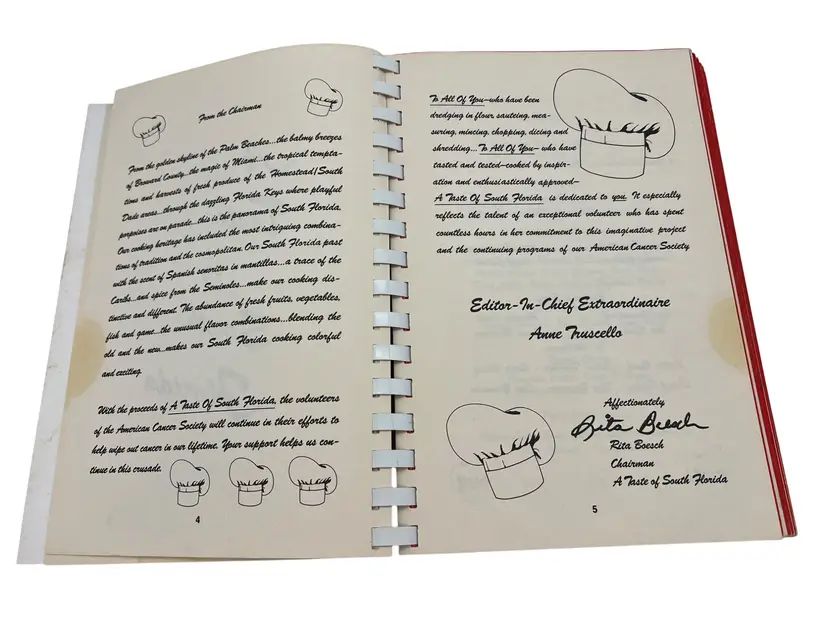 From the Chairman
From the golden skyline of the Palm Beaches...the balmy breezes
of Broward County...the magic of Miami...the tropical tempta-
tions and harvests of fresh produce of the Homestead/South
Dade areas...through the dazzling Florida Keys where playful
porpoises are on parade...this is the panorama of South Florida.
Our cooking heritage has included the most intriguing combina-
tions of tradition and the cosmopolitan. Our South Florida past
with the scent of Spanish senoritas in mantillas...a trace of the
Caribs...and spice from the Seminoles...make our cooking dis-
tinctive and different. The abundance of fresh fruits, vegetables,
fish and game...the unusual flavor combinations...blending the
old and the new...makes our South Florida cooking colorful
and exciting.
With the proceeds of A Taste Of South Florida, the volunteers
of the American Cancer Society will continue in their efforts to
help wipe out cancer in our lifetime. Your support helps us con-
tinue in this crusade.
4
To All Of You—who have been
dredging in flour, sauteing, mea-
suring, mincing, chopping, dicing and
shredding...To All Of You— who have
tasted and tested—cooked by inspir-
ation and enthusiastically approved—
A Taste Of South Florida is dedicated to you. It especially
reflects the talent of an exceptional volunteer who has spent
countless hours in her commitment to this imaginative project
and the continuing programs of our American Cancer Society
Editor-In-Chief Extraordinaire
Anne Truscello
Affectionately
Rita Boesch
Rita Boesch
Chairman
A Taste of South Florida
5